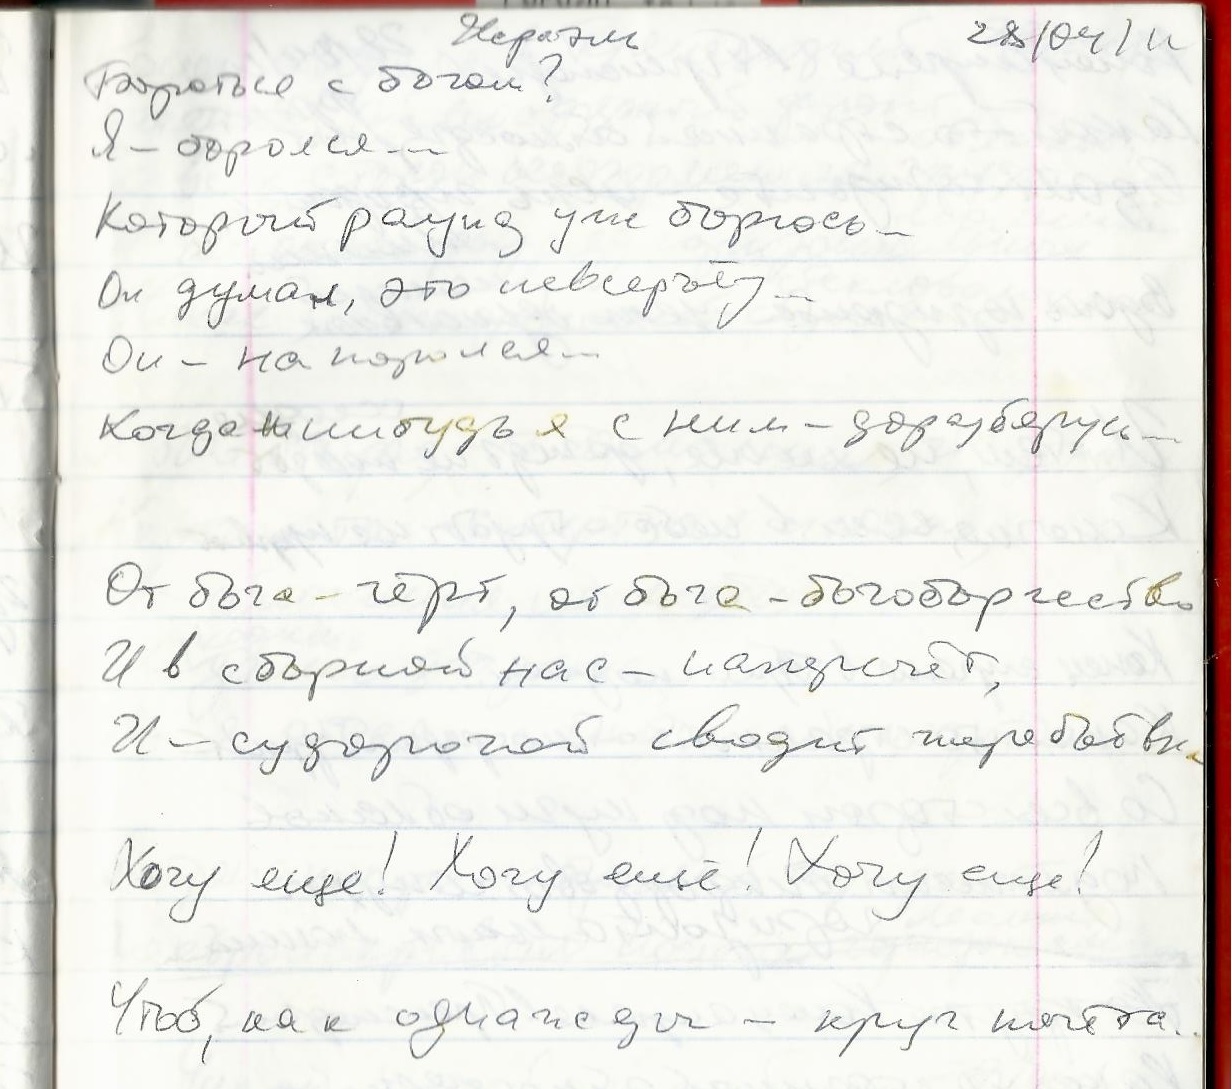 Израэль 28/04/11
Бороться с богом?
Я – боролся...
Который раунд уже борюсь...
Он думал, это невсерьёз...
Он – напоролся...
Когданнибудь я с ним – доразберусь...
От бога – чёрт, от бога – богоборчество
И в сборной нас – наперечёт,
И – судорогой сводит
Хочу еще! Хочу еще! Хочу еще!
Чтоб, как однажды – круг почёта..